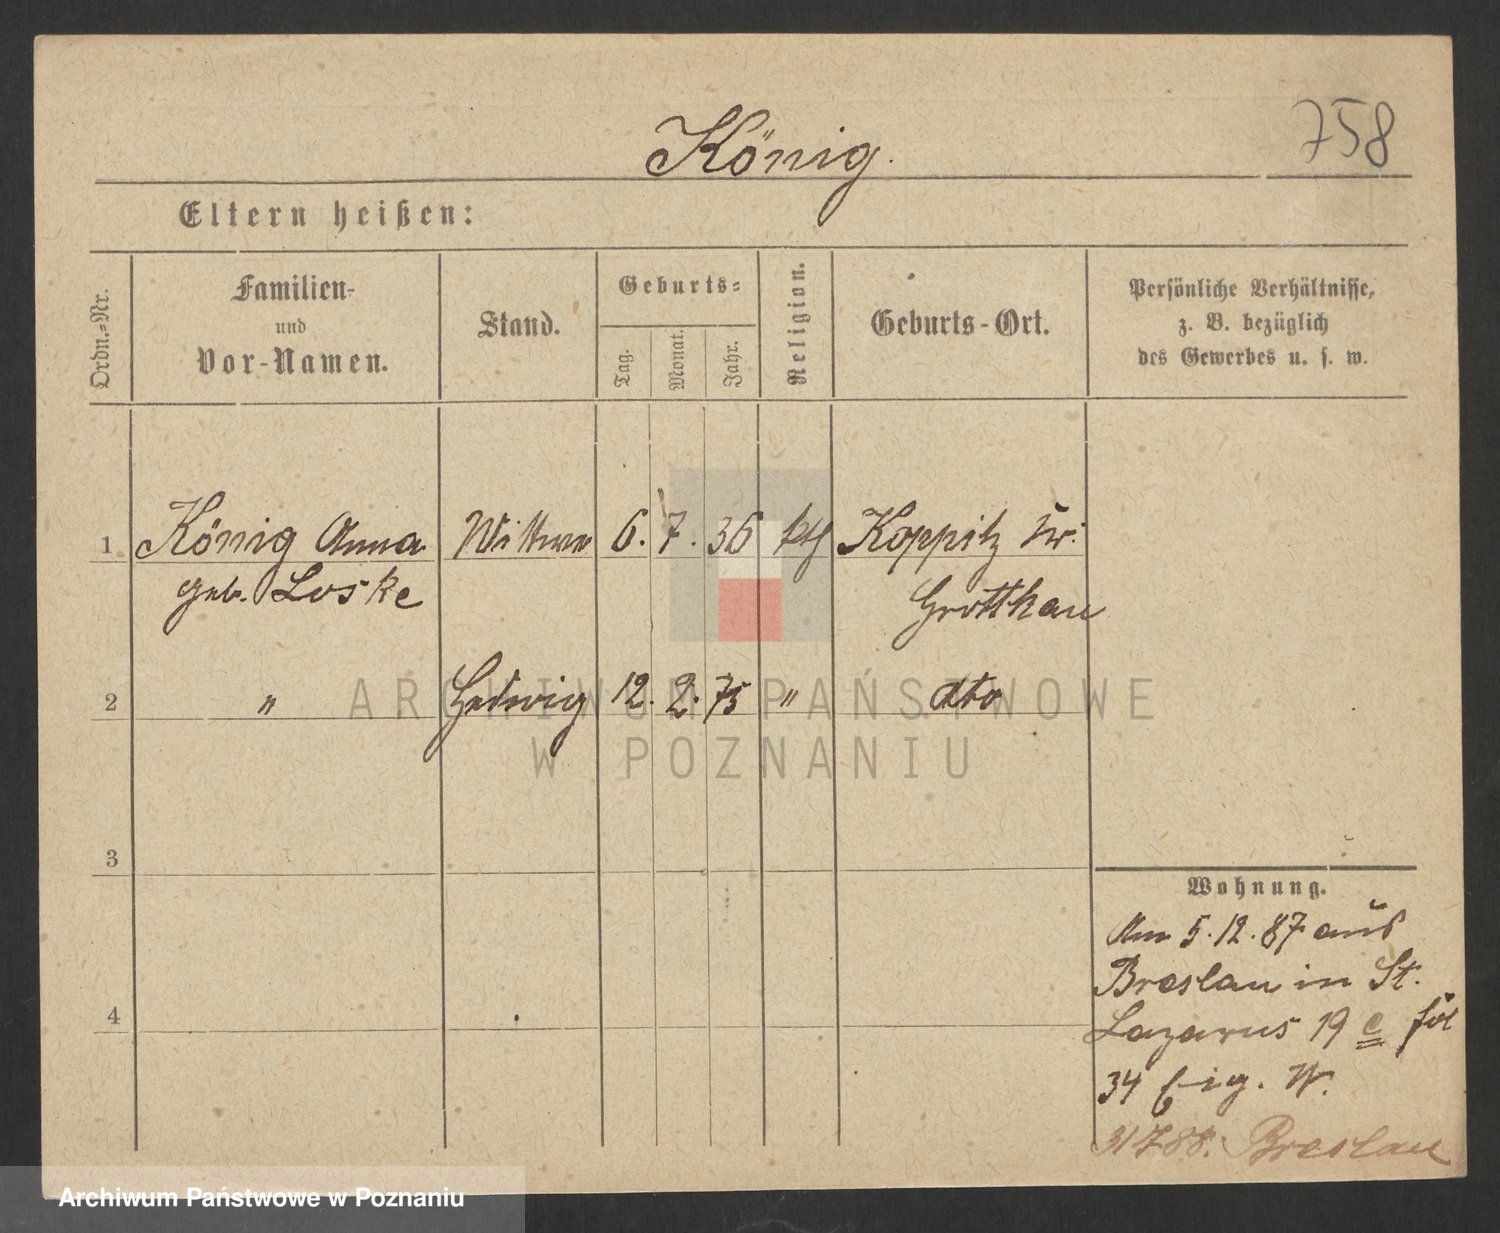 König.
758
Eltern heißen:
Ordn.=Nr.
Familien-
und
Vor-Namen.
Stand.
Geburts=
Tag.
Monat.
Jahr.
Religion.
Geburts-Ort.
Persönliche Verhältnisse,
z. B. bezüglich
des Gewerbes u. s. w.
1 König Anna Wittwe 6. 7. 36 kth Koppitz Kr.
geb. Loske Grottkau
2 " Hedwig 12. 2. 75 " dto
3
4
Wohnung.
Am 5.12.87 aus
Breslau in St.
Lazarus 19 c fol
34 Eig. W.
31 7 88. Breslau
ARCHIWUM PAŃSTWOWE
W POZNANIU
Archiwum Państwowe w Poznaniu